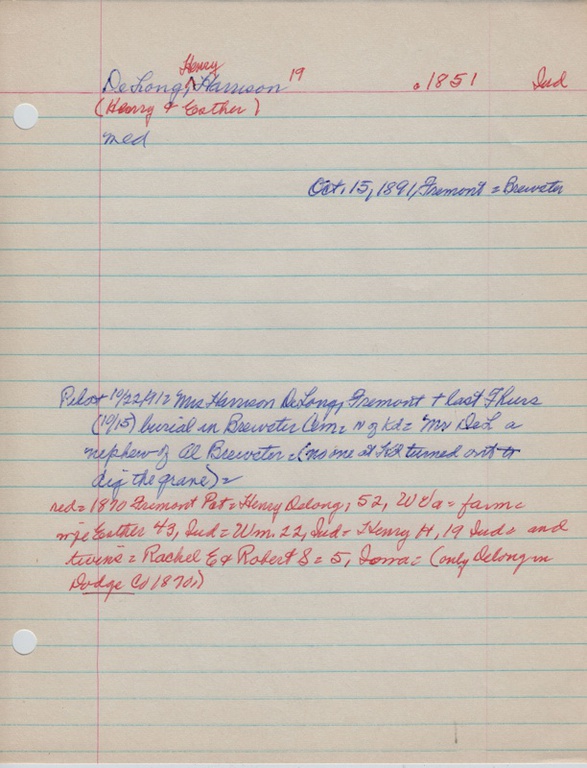 Henry 19
DeLong, ^ Harrison c 1851 Ind
(Henry & Esther)
med
Oct. 15, 1891, Fremont = Brewster
Pilot 10/22/91 = Mrs Harrison DeLong, Fremont + last Thurs
(10/15) burial in Brewster Cem = N of Kd = Mr DeL a
nephew of Al Brewster = (no one at turned out to
dig the grave) =
red = 1870 Fremont Pct = Henry Delong, 52, W Va = farm =
wife Esther 43, Ind = Wm. 22, Ind = Henry H, 19 Ind = and
twins = Rachel E & Robert S = 5, Iowa = (only Delong in
Dodge Co 1870)